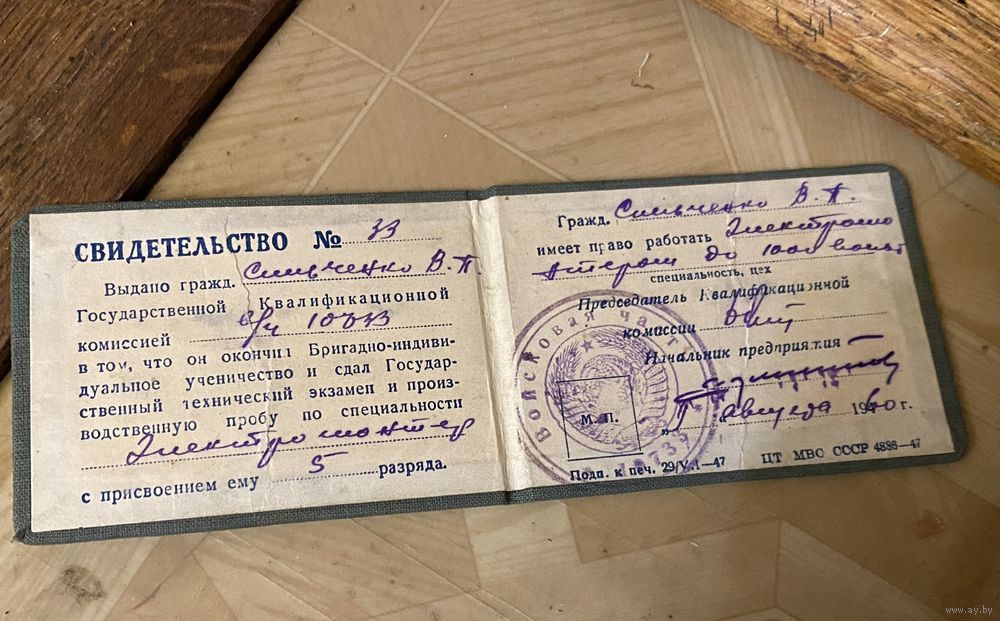 СВИДЕТЕЛЬСТВО № 33
Выдано гражд. Сильченко В. П.
Государственной Квалификационной
комиссией в/ч 10733
в том, что он окончил Бригадно-индиви-
дуальное ученичество и сдал Государ-
ственный технический экзамен и произ-
водственную пробу по специальности
Электромонтер
с присвоением ему 5 разряда.
Гражд. Сильченко В. П.
имеет право работать Электромо
нтером до 1000 вольт
специальность, цех
Председатель Квалификационной
комиссии
Начальник предприятия
М. П.
августа 1960 г.
Войсковая часть
Подп. к печ. 29/VI—47 ЦТ МВС СССР 4886—47
www.ay.by